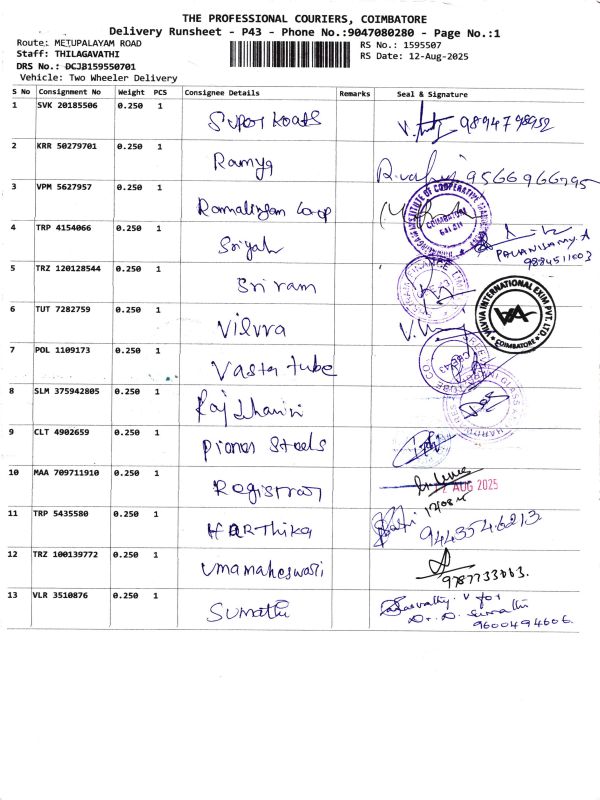 THE PROFESSIONAL COURIERS, COIMBATORE
Delivery Runsheet - P43 - Phone No.:9047080280 - Page No.:1
Route: METUPALAYAM ROAD
RS No.: 1595507
Staff: THILAGAVATHI
RS Date: 12-Aug-2025
DRS No.: DCJB159550701
Vehicle: Two Wheeler Delivery
S No Consignment No Weight PCS Consignee Details Remarks Seal & Signature
1 SVK 20185506 0.250 1 9894798952
2 KRR 50279701 0.250 1 Ramya 9566966795
3 VPM 5627957 0.250 1
4 TRP 4154066 0.250 1 PALANISAMY.A
9884511003
5 TRZ 120128544 0.250 1 Sri ram
6 TUT 7282759 0.250 1 Vilvva VILVVA INTERNATIONAL EXIM PVT. LTD. COIMBATORE
7 POL 1109173 0.250 1 Vasta tube
8 SLM 375942805 0.250 1
9 CLT 4902659 0.250 1 Steels
10 MAA 709711910 0.250 1 Registrar 2 AUG 2025
11 TRP 5435580 0.250 1 HARTHIKA 9443546213
12 TRZ 100139772 0.250 1 Umamaheswari
9787733003.
13 VLR 3510876 0.250 1 Sumathi V for
Dr. D. Sumathi
9600494606.